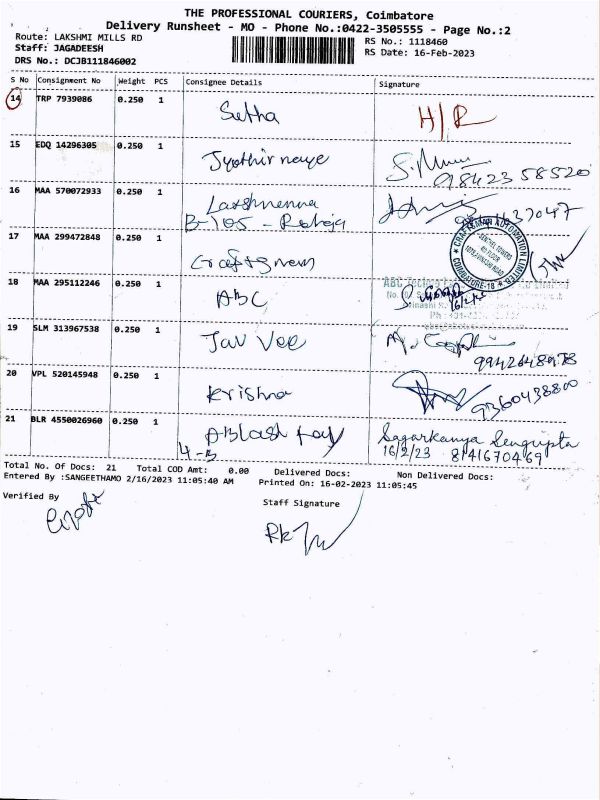 THE PROFESSIONAL COURIERS, Coimbatore
Delivery Runsheet - MO - Phone No.:0422-3505555 - Page No.:2
Route: LAKSHMI MILLS RD
RS No.: 1118460
Staff: JAGADEESH
RS Date: 16-Feb-2023
DRS No.: DCJB111846002
S No Consignment No Weight PCS Consignee Details Signature
14 TRP 7939086 0.250 1 Setha H/R
15 EDQ 14296305 0.250 1
98423 58520
16 MAA 570072933 0.250 1
B-105 - Raheja
17 MAA 299472848 0.250 1
COIMBATORE-18
18 MAA 295112246 0.250 1 ABC
19 SLM 313967538 0.250 1 Jav Vee
9942648978
20 VPL 520145948 0.250 1 Krishna
9360438800
21 BLR 4550026960 0.250 1 Sagarkanya Sengupta
4-B
16/2/23 8141670469
Total No. Of Docs: 21 Total COD Amt: 0.00 Delivered Docs: Non Delivered Docs:
Entered By :SANGEETHAMO 2/16/2023 11:05:40 AM Printed On: 16-02-2023 11:05:45
Verified By
Staff Signature